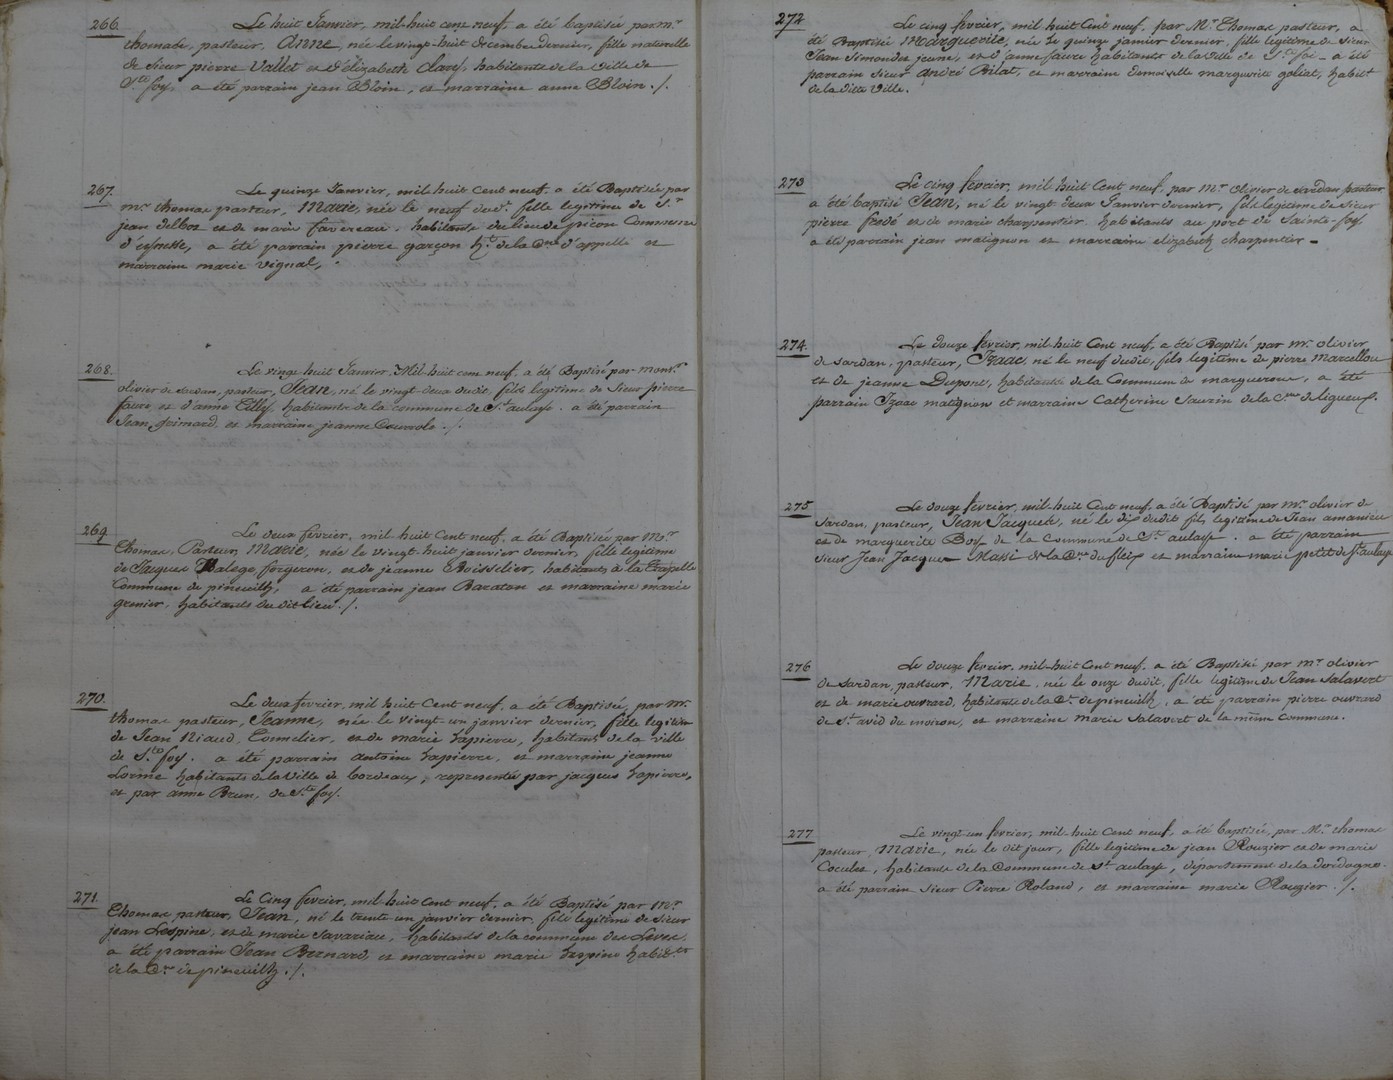 266. Le huit Janvier, mil-huit cent neuf, a été baptisée par mr.
thomas, pasteur, Anne, née le vingt-huit decembre dernier, fille naturelle
de Sieur pierre Vallet et d'élizabeth Clary, habitants de la ville de
Ste foy, a été parrain jean Bloin, et marraine anne Bloin ./.
267. Le quinze Janvier, mil-huit Cent neuf, a été Baptisée par
mr. thomas pasteur, Marie, née le neuf dudt. fille legitime de Sr.
jean delbos et de marie favereau, habitants du lieu de picon Commune
d'eynesse, a été parrain pierre garçon ht. de la Cne d'appelle et
marraine marie vignal,
268. Le vingt huit Janvier Mil-huit cent neuf, a été Baptisé par monsr.
olivier de sardan, pasteur, Jean, né le vingt deux dudit, fils legitime de Sieur pierre
faure, et d'anne Tilly, habitants de la commune de St. aulaye. a été parrain
Jean grimard, et marraine jeanne ./.
269. Le deux février, mil huit Cent neuf, a été Baptisée par Mr.
Thomas, Pasteur, Marie, née le vingt-huit janvier dernier, fille legitime
de Jacques forgeron, et de jeanne Boisselier, habitants à la Chapelle
Commune de pineuilh, a été parrain jean Baratan et marraine marie
grenier, habitants du dit lieu ./.
270. Le deux février, mil huit Cent neuf, a été Baptisée, par mr.
thomas pasteur, Jeanne, née le vingt-un janvier dernier, fille legitime
de Jean Riaud, Tonnelier, et de marie Lapierre, habitans de la ville
de Ste. foy. a été parrain antoine Lapierre, et marraine jeanne
Lorme habitants de la Ville de bordeaux, representés par jacques Lapierre,
et par anne Brun, de Ste foy.
271. Le Cinq fevrier, mil huit Cent neuf, a été Baptisé par mr.
Thomas, pasteur, Jean, né le trente un janvier dernier, fils legitime de Sieur
jean Lespine, et de marie Savariau, habitants de la commune des Leves,
a été parrain Jean Bernard, et marraine marie Lespine habits.
de la Cne. de pineuilh ./.
272 Le cinq fevrier, mil huit Cent neuf, par Mr. Thomas pasteur, a
été Baptisée Marguerite, née le quinze janvier dernier, fille legitime de Sieur
Jean Simondet jeune, et d'anne faure habitants de la ville de Ste. foi _ a été
parrain sieur andré Pilat, et marraine demoiselle marguerite goliat, habitt.
de la dite Ville.
273 Le cinq fevrier, mil huit Cent neuf, par Mr. Olivier de sardan pasteur
a été baptisé Jean, né le vingt deux Janvier dernier, fils legitime de Sieur
pierre fedé et de marie charpentier habitants au port de Sainte-foy,
a été parrain jean matignon et marraine elizabeth charpentier -
274. Le douze fevrier, mil huit Cent neuf, a été Baptisé par mr. olivier
de sardan, pasteur, Izaac, né le neuf dudit, fils legitime de pierre marcellou
et de jeanne Duport, habitants de la Commune de margueron, a été
parrain Izaac matignon et marraine Catherine Saurin de la Cne de ligueux.
275 Le douze fevrier, mil-huit Cent neuf, a été Baptisé par mr. olivier de
Sardan, pasteur, Jean Jacques, né le dix dudit fils legitime de Jean amanieu
et de marguerite Boy de la Commune de St. aulaye. a été parrain
sieur Jean Jacques Massi de la Cne. du fleix et marraine marie petit de St. aulaye
276 Le douze fevrier, mil-huit Cent neuf, a été Baptisé par mr. olivier
de sardan, pasteur, Marie, née le onze dudit, fille legitime de Jean Salavert
et de marie ouvrard, habitants de la Ce. de pineuilh, a été parrain pierre ouvrard
de St. avid du moiron, et marraine marie Salavert de la même Commune.
277 Le vingt-un fevrier, mil-huit Cent neuf, a été baptisée, par Mr. thomas
pasteur, Marie, née le dit jour, fille legitime de jean Rouzier et de marie
Coculet, habitants de la Commune de St aulaye, département de la dordogne.
a été parrain sieur Pierre Roland, et marraine marie Rougier ./.